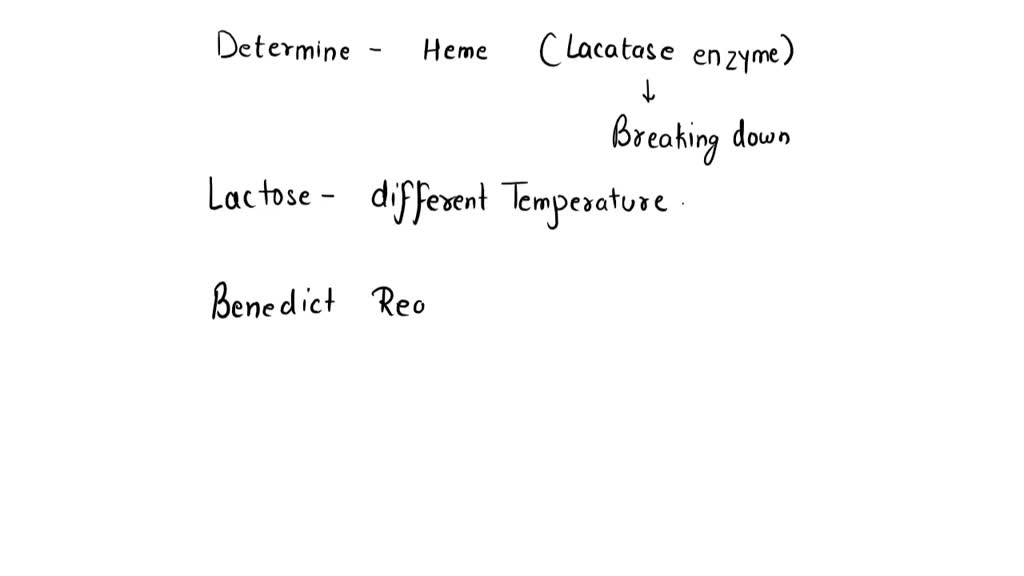 Determine - Heme (Lacatase enzyme)
↓
Breaking down
Lactose - different Temperature .
Benedict Reo